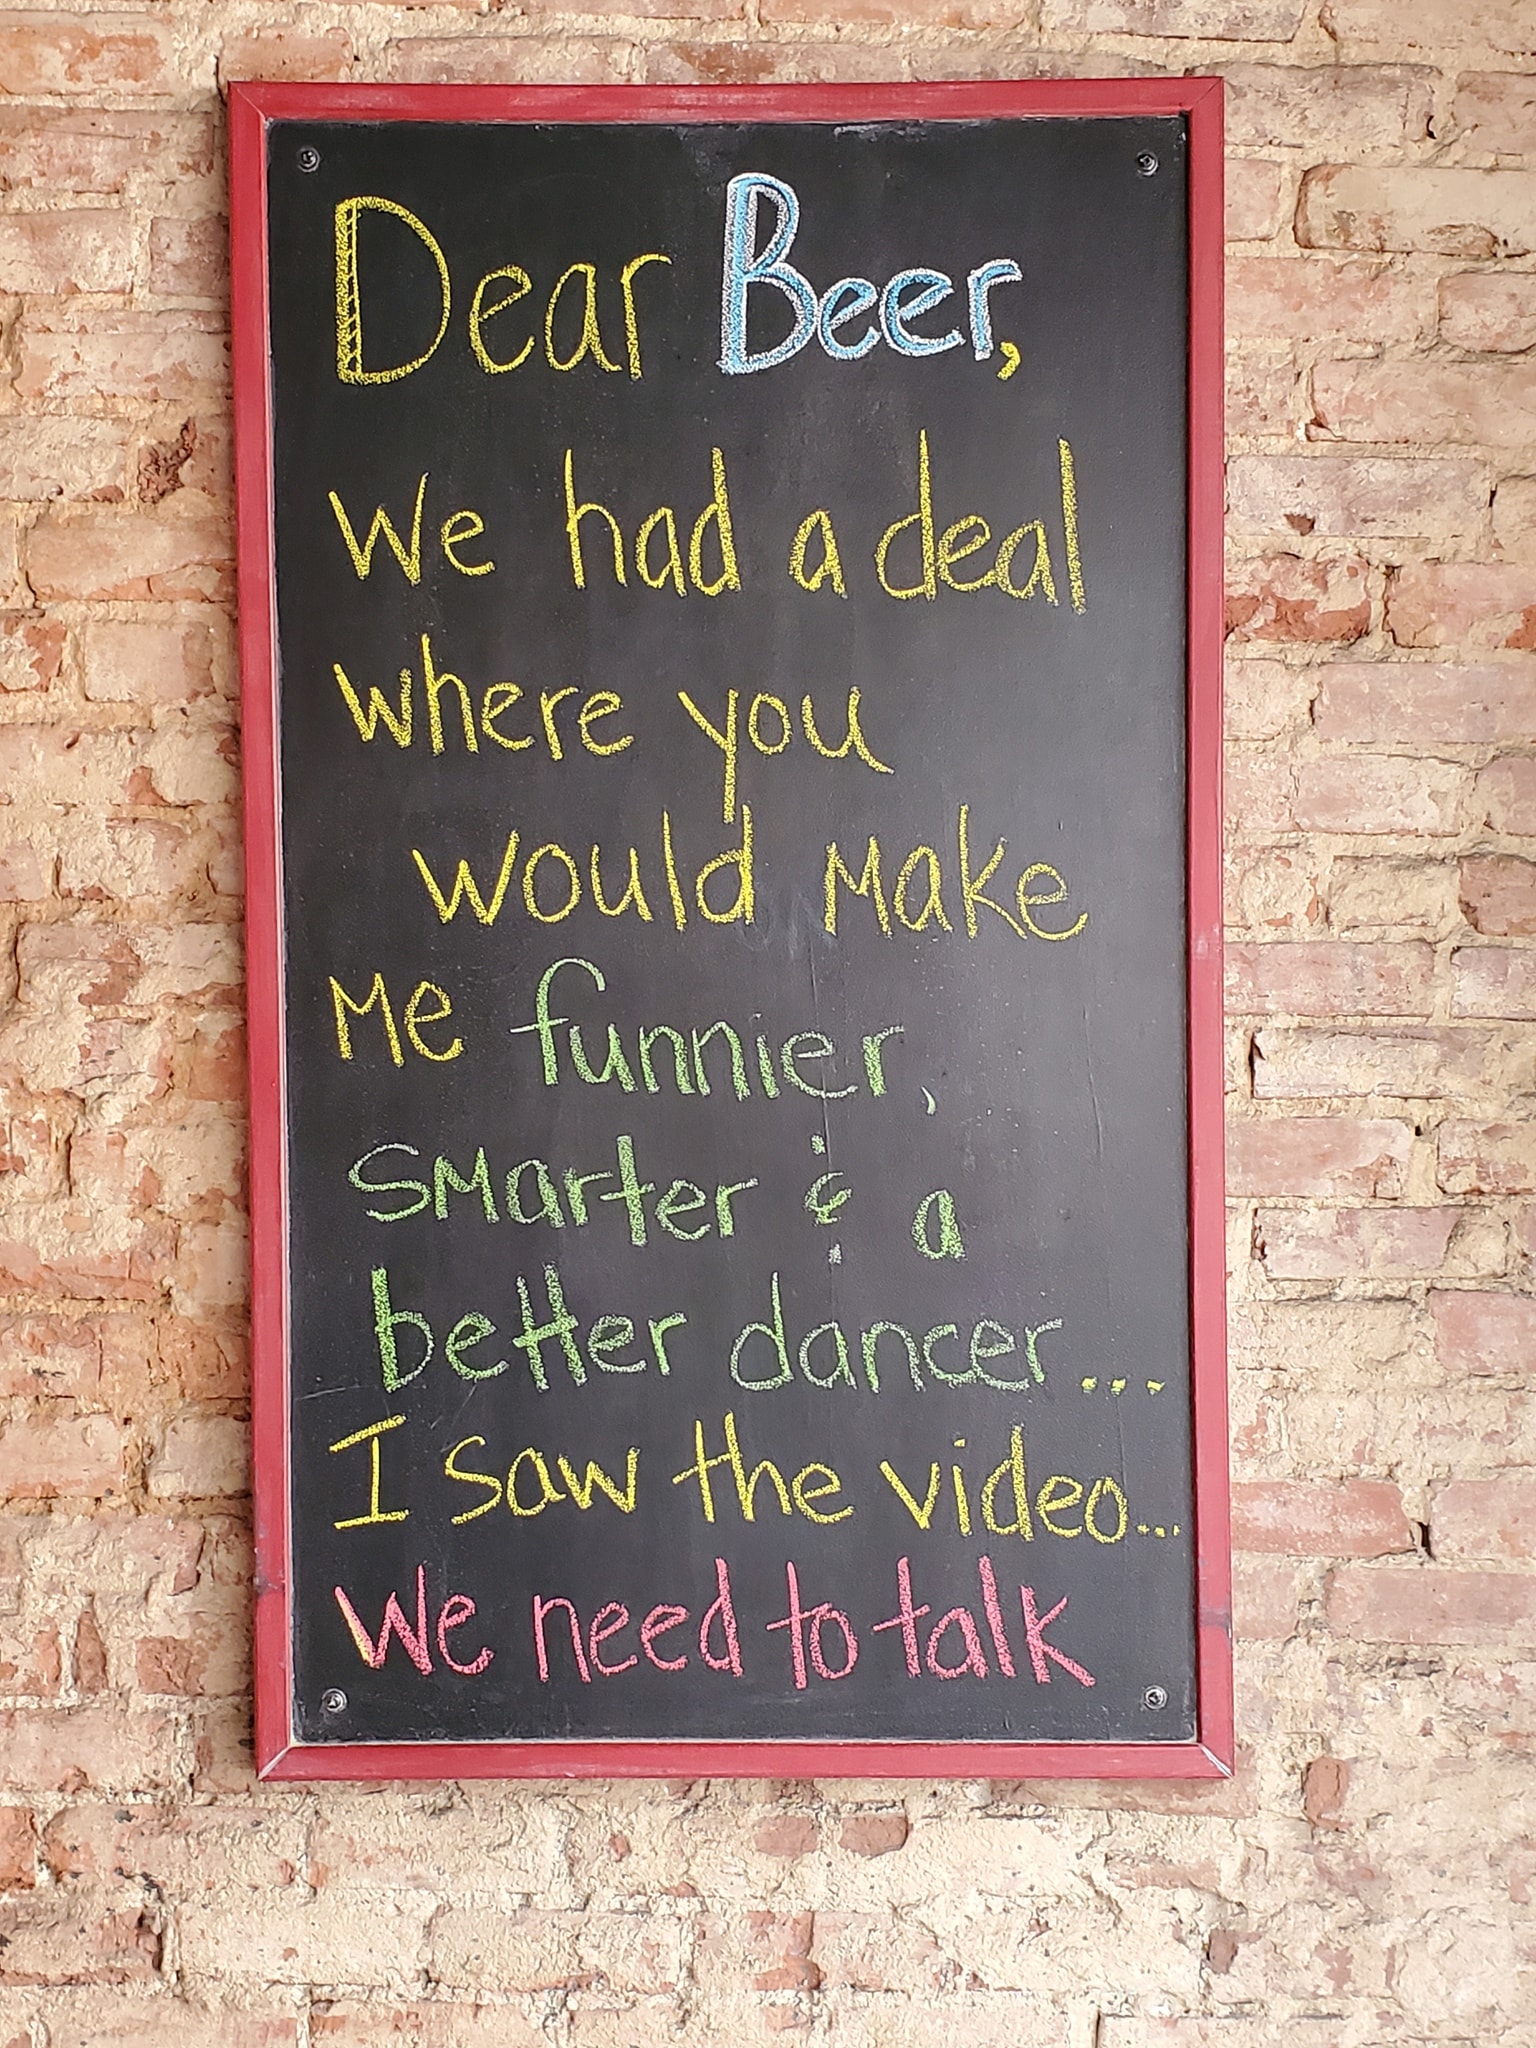 Dear Beer,
We had a deal
where you
would Make
Me funnier,
sMarter & a
better dancer...
I saw the video...
We need to talk